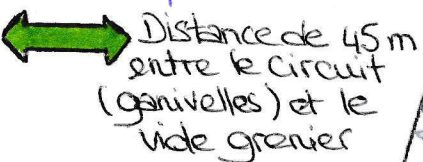 Distance de 45m
entre le Circuit
(ganivelles) et le
vide grenier